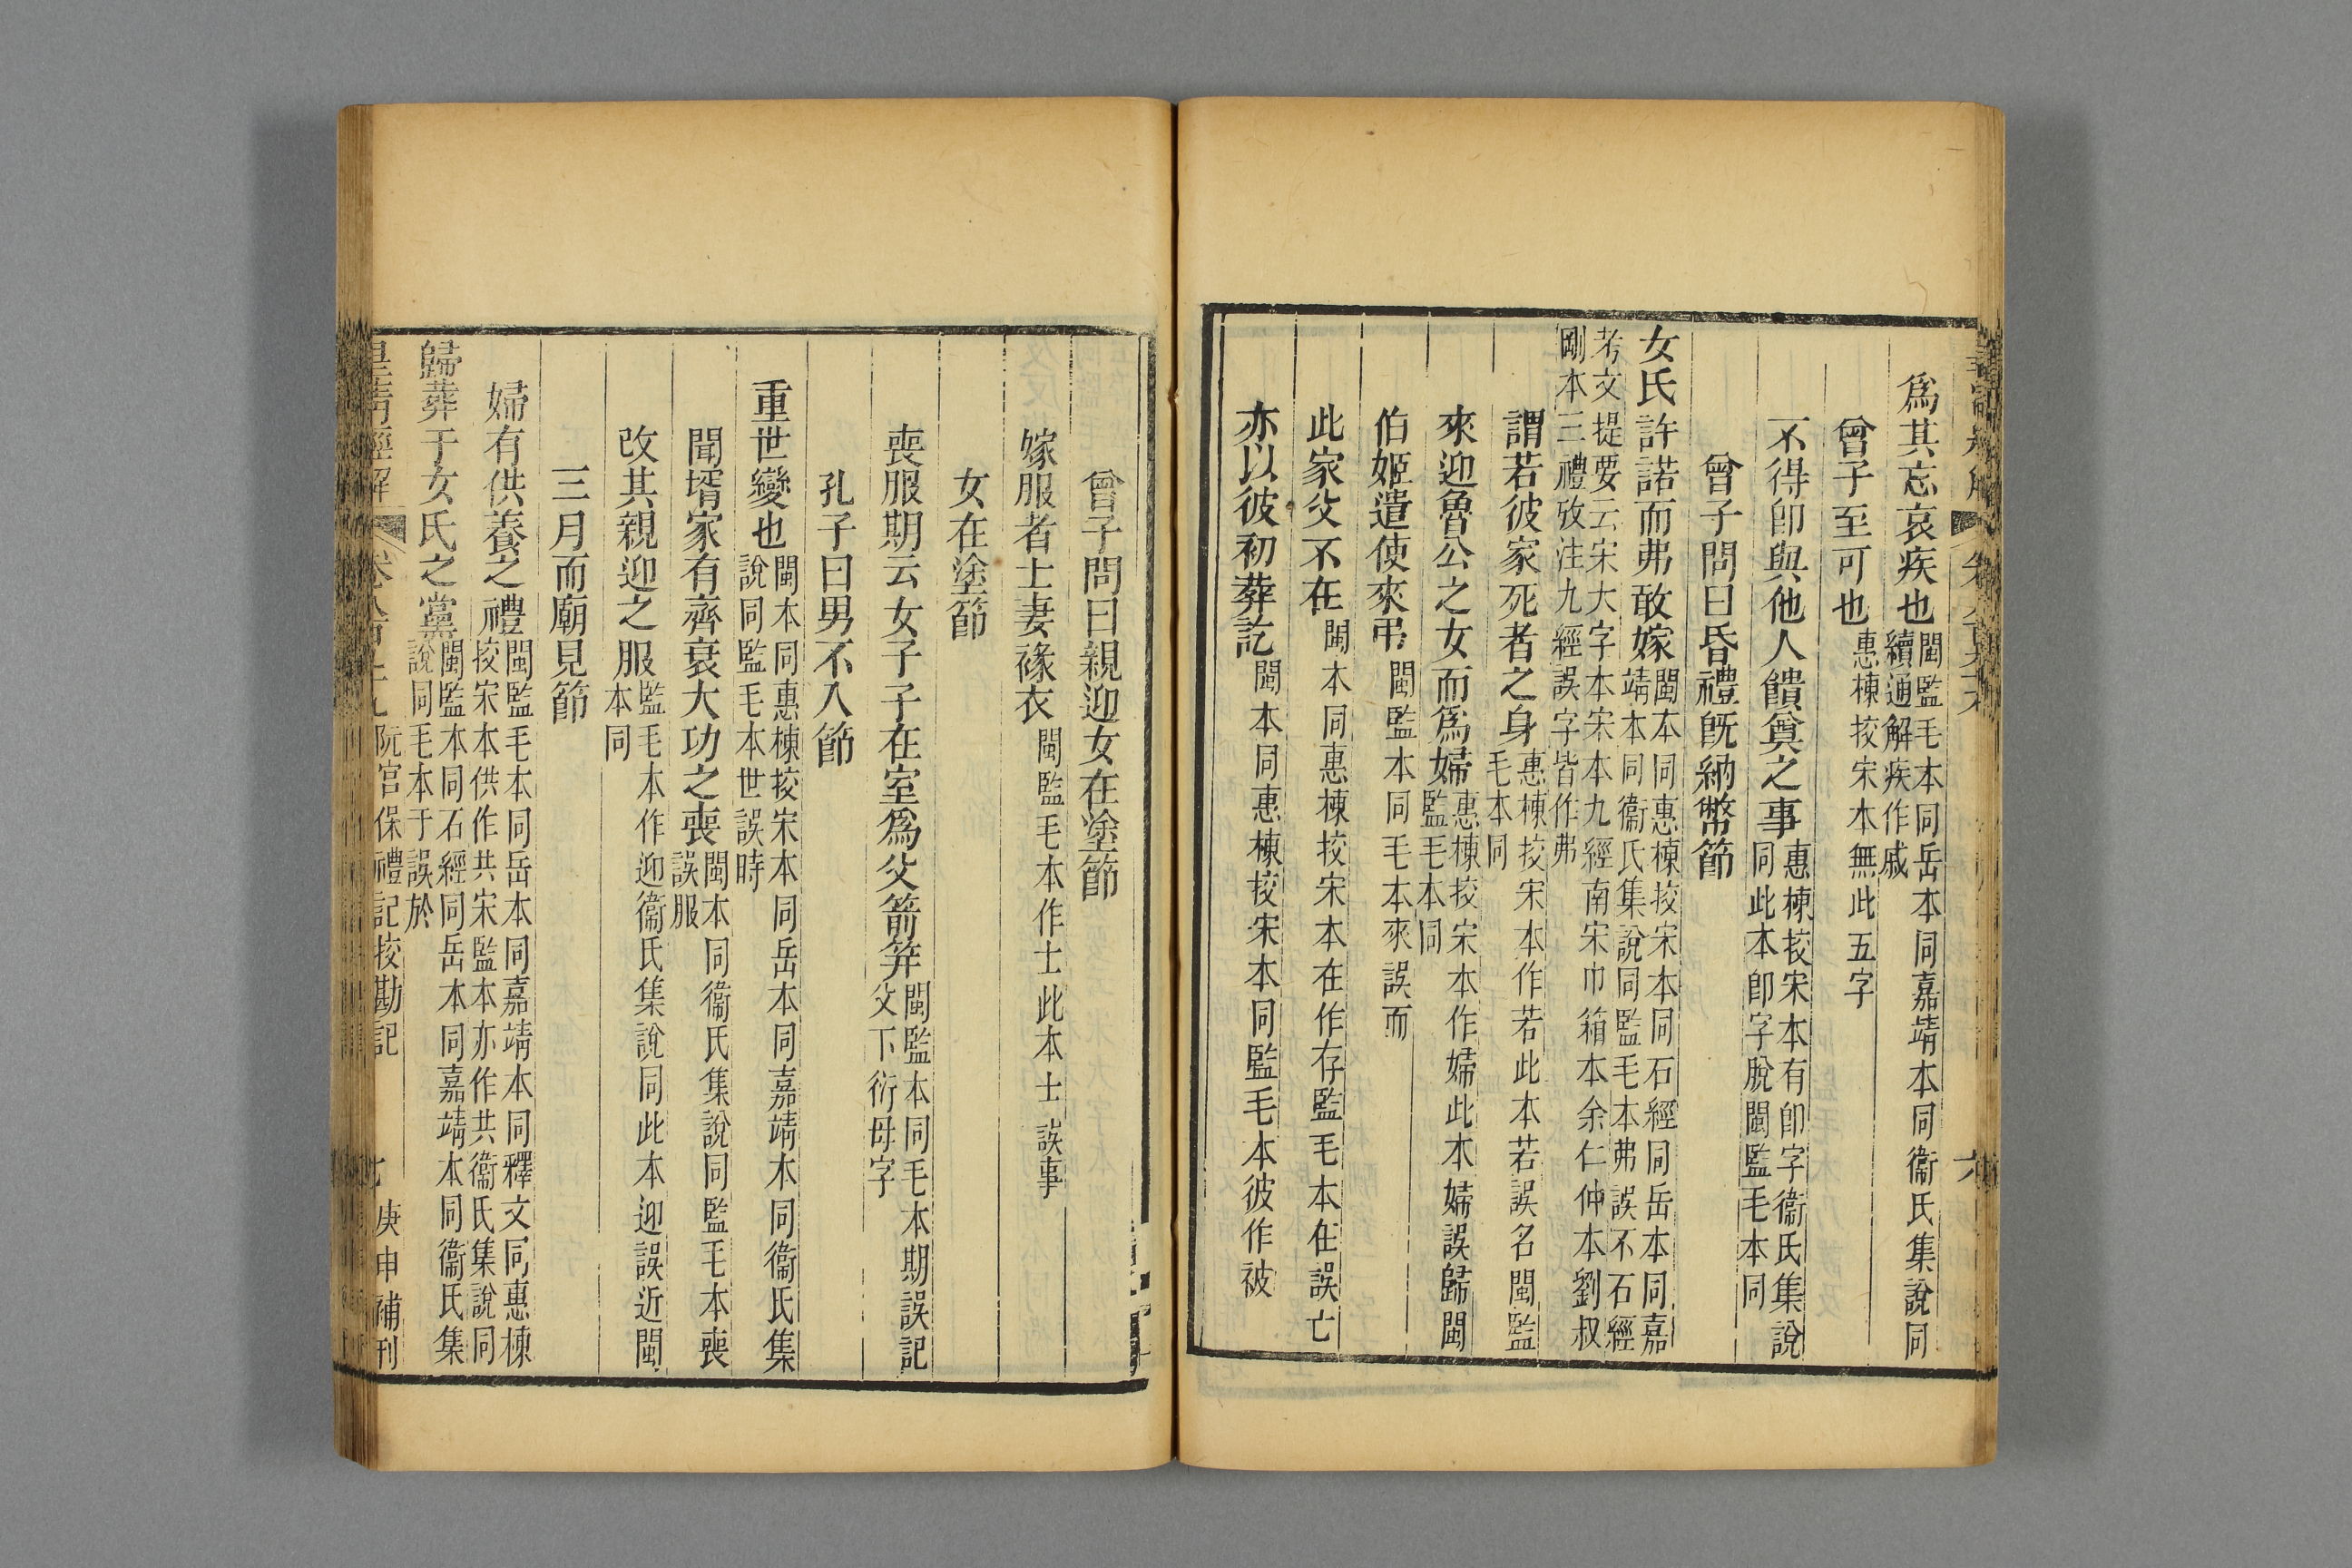 爲其忘哀疾也閩監毛本同岳本同嘉靖本同衞氏集說同續通解疾作戚
曾子至可也惠棟挍宋本無此五字
不得卽與他人饋奠之事惠棟挍宋本有卽字衞氏集說同此本卽字脫閩監毛本同
曾子問曰昏禮旣納幣節
女氏許諾而弗敢嫁閩本同惠棟挍宋本同石經同岳本同嘉靖本同衞氏集說同監毛本弗誤不石經
考文提要云宋大字本宋本九經南宋巾箱本余仁仲本劉叔剛本三禮攷注九經誤字皆作弗
謂若彼家死者之身惠棟挍宋本作若此本若誤名閩監毛本同
來迎魯公之女而爲婦惠棟挍宋本作婦此本婦誤歸閩監毛本同
伯姬遣使來弔閩監本同毛本來誤而
此家父不在閩本同惠棟挍宋本在作存監毛本在誤亡
亦以彼初葬訖閩本同惠棟挍宋本同監毛本彼作被
曾子問曰親迎女在塗節
嫁服者士妻褖衣閩監毛本作士此本士誤事
女在塗節
喪服期云女子子在室爲父箭笄閩監本同毛本期誤記父下衍母字
孔子曰男不入節
重世變也閩本同惠棟挍宋本同岳本同嘉靖本同衞氏集說同監毛本世誤時
聞壻家有齊衰大功之喪閩本同衞氏集說同監毛本喪誤服
改其親迎之服監毛本作迎衞氏集說同此本迎誤近閩本同
三月而廟見節
婦有供養之禮閩監毛本同岳本同嘉靖本同釋文同惠棟挍宋本供作共宋監本亦作共衞氏集說同
歸葬于女氏之黨閩監本同石經同岳本同嘉靖本同衞氏集說同毛本于誤於
皇清經解 阮宮保禮記挍勘記 七 庚申補刊